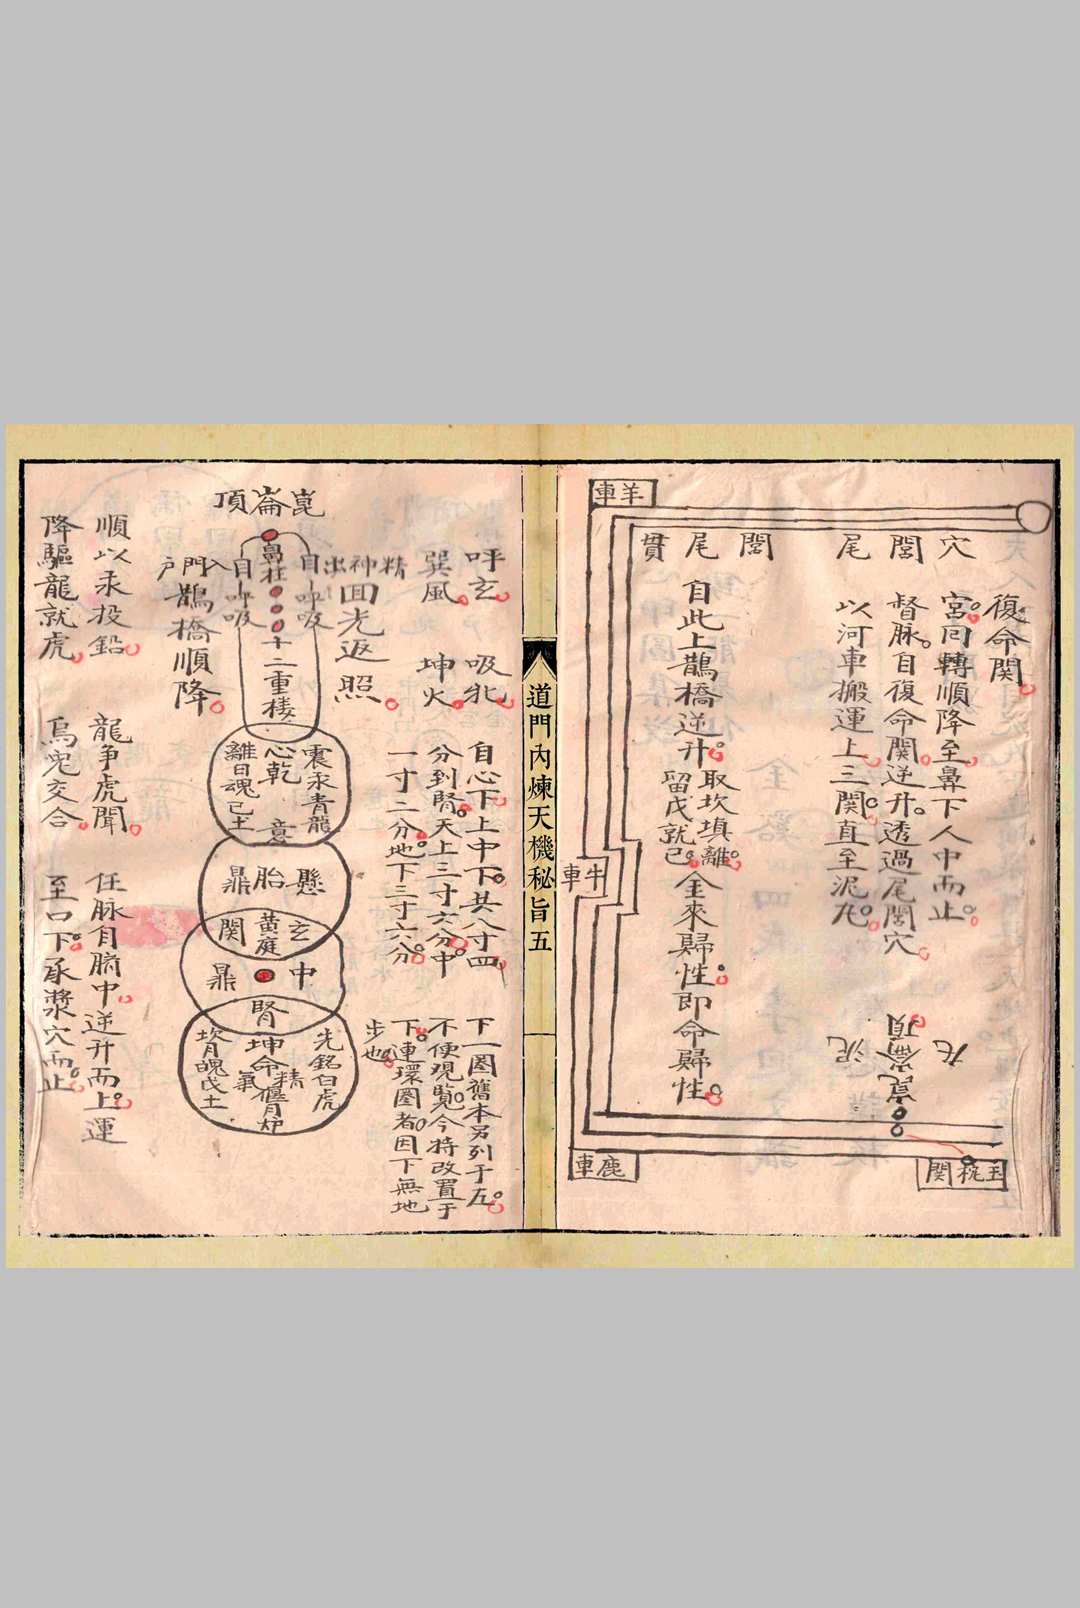 復命関
宮。回轉順降至鼻下人中而止。
督脉。自復命関逆升。透過尾閭穴
以河車搬運上三関。直至泥丸。
穴閭尾
閭尾貫
羊車
牛車
鹿車
玉枕関
崑崙頂
泥丸
自此上鵲橋逆升。
取坎填離。
留戊就己。
金來歸性。即命歸性。
道門內煉天機秘旨五
呼玄 吸牝
巽風 坤火
自心下上中下。共八寸四
分到腎。天上三寸六分。中
一寸二分。地下三寸六分
下一圈舊本另列于左。
不便現覧。今特改置于
下。連環圈者。因下無地
步也。
崑崙頂
精神出自呼吸
入門戶
自呼吸
鼻柱
回光返照
鵲橋順降
十二重楼
震汞青龍
心乾
離日魂己土
意
懸胎鼎
玄黃庭関
中鼎
腎
先鉛白虎
坤命
精氣
偃月炉
坎月魄戊土
順以汞投鉛
降驅龍就虎
龍爭虎鬪
烏兔交合
任脉自臍中逆升而上。運
至口下。承漿穴而止。